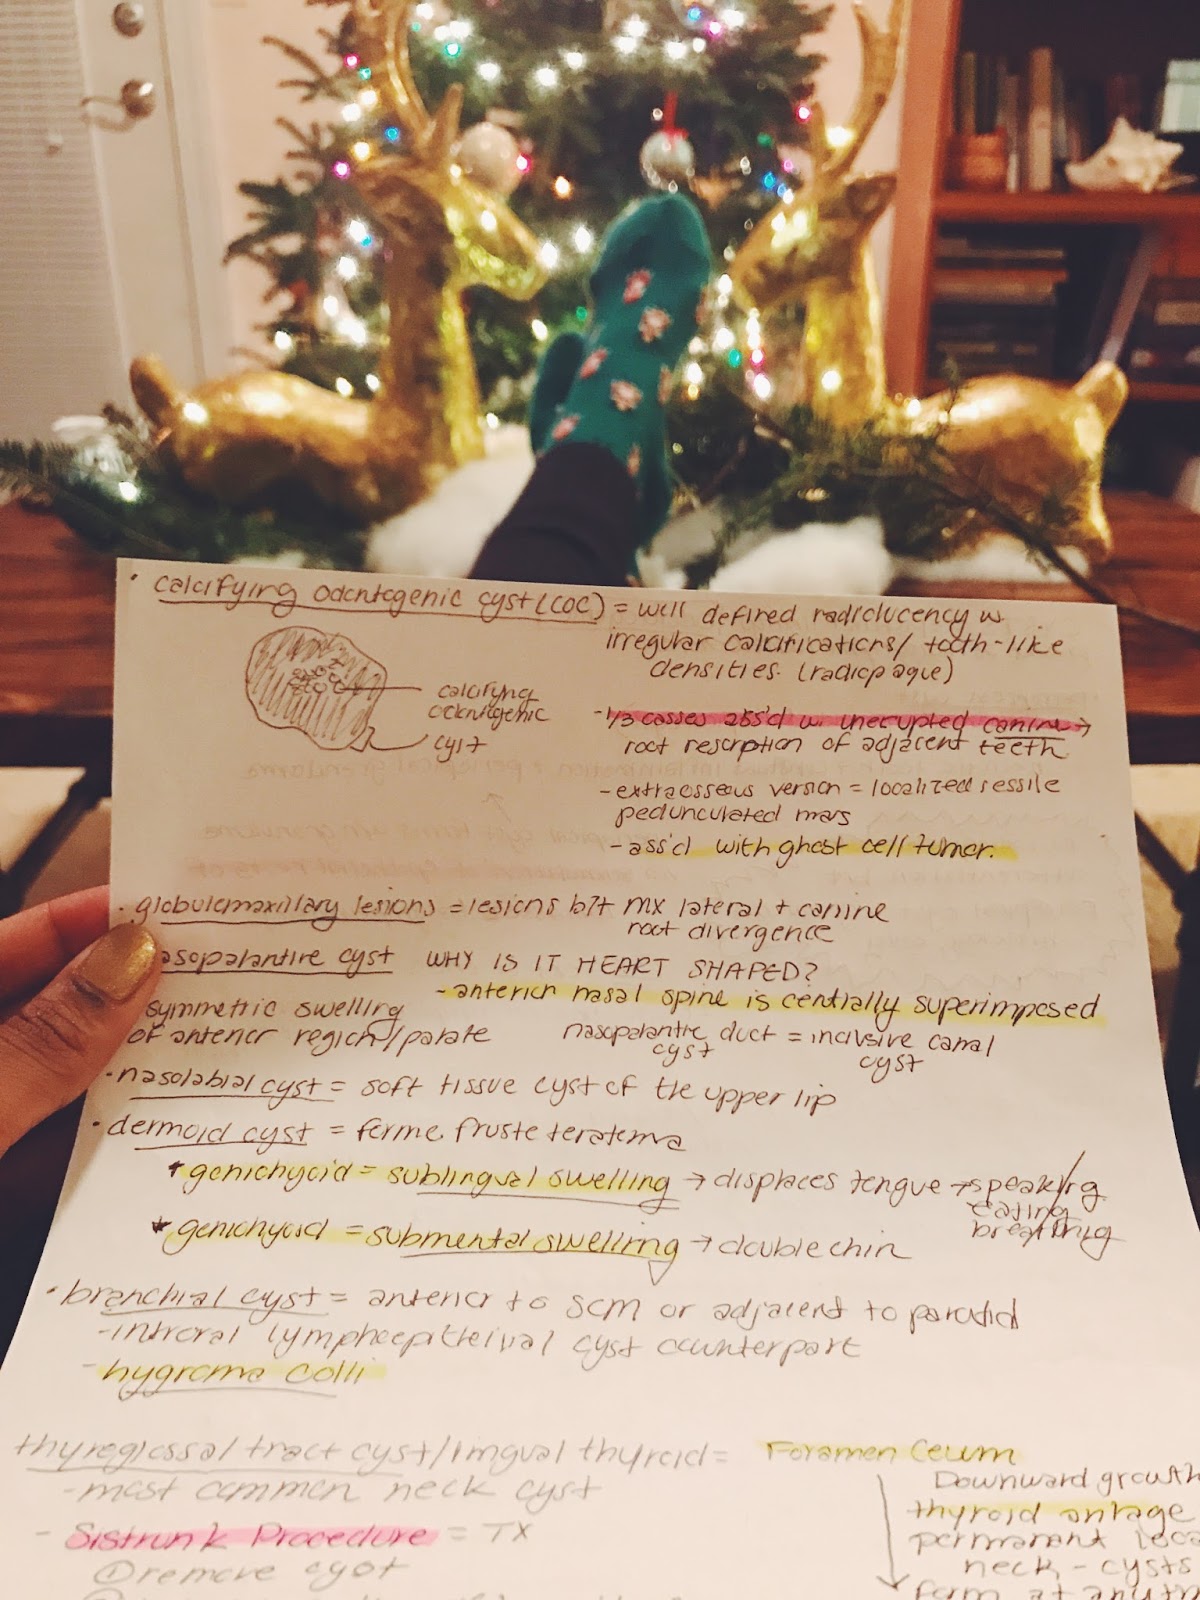 • calcifying odontogenic cyst (COC) = well defined radiolucency w.
irregular calcifications/ tooth-like
densities. (radiopaque)
calcifying
odontogenic
cyst
- 1/3 casses ass'd w. unerupted canine →
root resorption of adjacent teeth
- extraosseous version = localized sessile
pedunculated mass
- ass'd with ghost cell tumor.
• globulomaxillary lesions = lesions b/t mx lateral + canine
root divergence
asopalantine cyst WHY IS IT HEART SHAPED?
- anterior nasal spine is centially superimposed
symmetric swelling
of anterior region/palate
nasopalantine duct = incisive canal
cyst cyst
• nasolabial cyst = soft tissue cyst of the upper lip
• dermoid cyst = forme fruste teratoma
* geniohyoid = sublingual swelling → displaces tongue → speaking
eating
breathing
* geniohyoid = submental swelling → double chin
• branchial cyst = anterior to SCM or adjacent to parotid
- intraoral lymphoepitheival cyst counterpart
- hygroma colli
thyroglossal tract cyst/lingual thyroid = Foramen Cecum
- most common neck cyst
- Sistrunk Procedure = TX
① remove cyst
Downward growth
thyroid anlage
permanent loca
neck - cysts
form at any